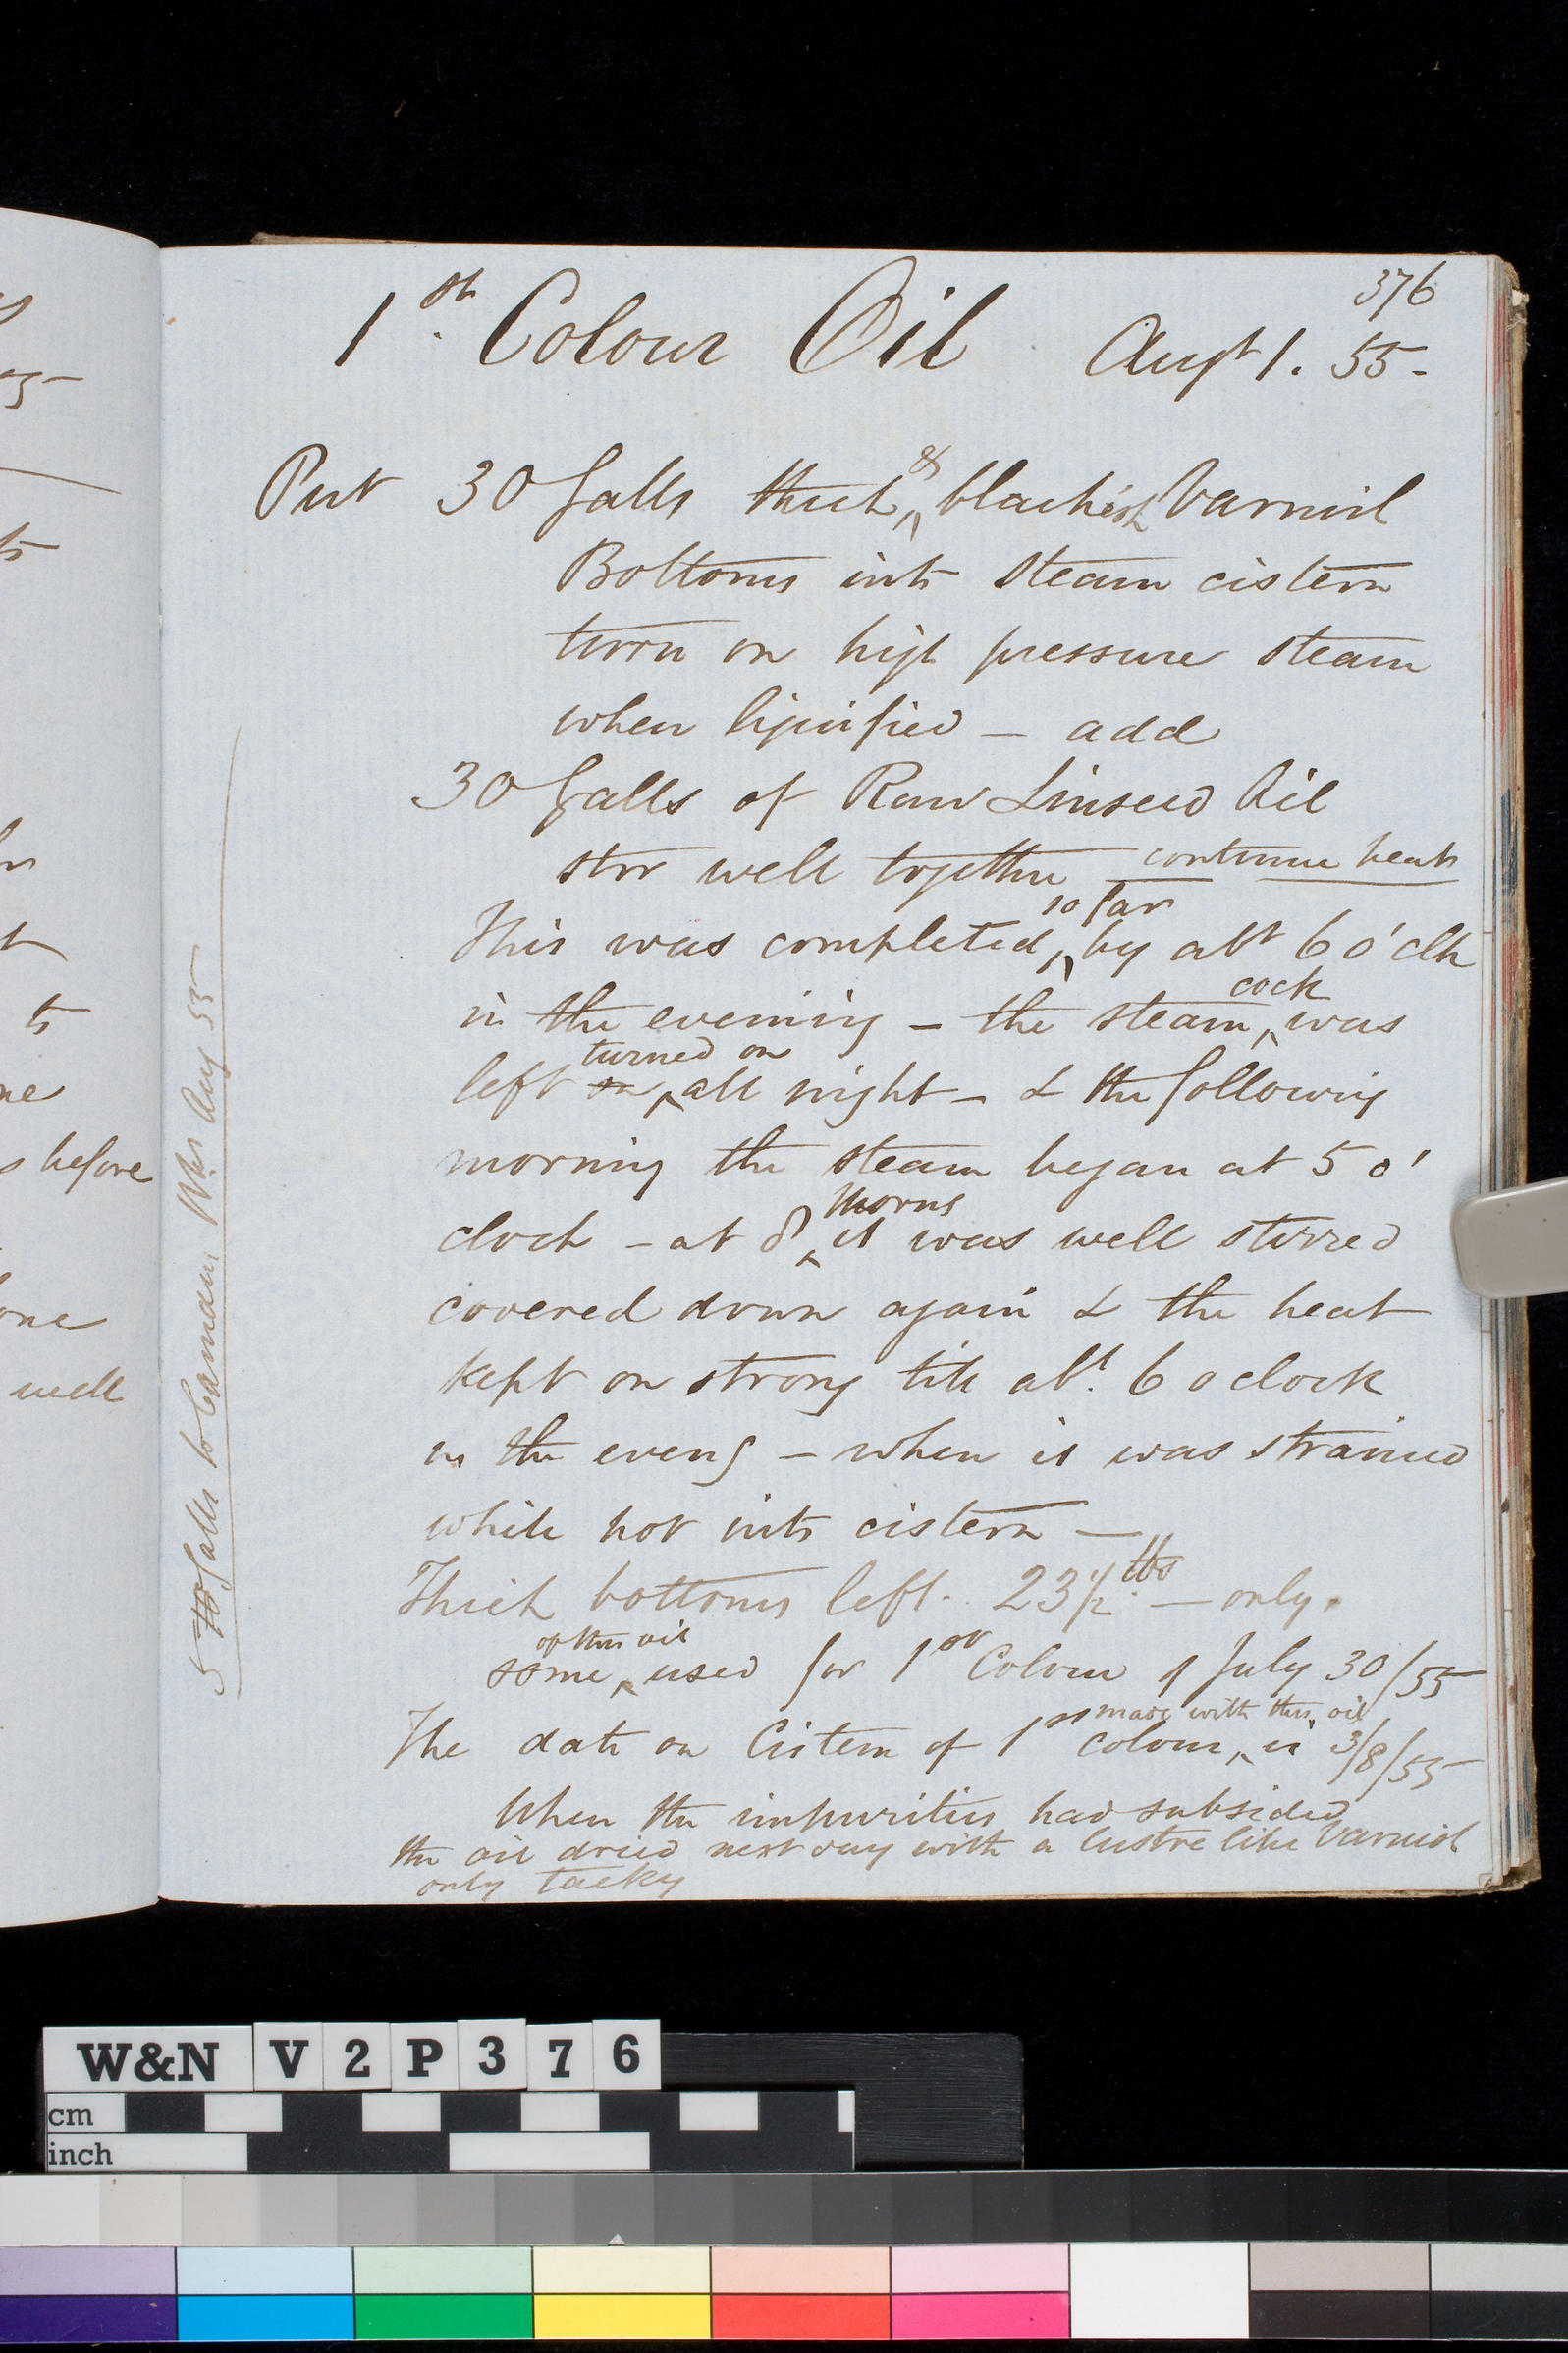 376
1st. Colour Oil Augt 1. 55-
Put 30 Galls thick & blackish Varnish
Bottoms into steam cistern
turn on high pressure steam
when liquified - add
30 Galls of Raw Linseed Oil
stir well together continue heat
This was completed so far by abt 6 o'clk
in the evening - the steam cock was
left on turned on all night - & the following
morning the steam began at 5 o'
clock - at 8 morng it was well stirred
covered down again & the heat
kept on strong till abt. 6 o clock
in the eveng - when it was strained
while hot into cistern -
Thick bottoms left. 23 1/2 lbs - only.
some of this oil used for 1st Colour of July 30/55
The date on Cistern of 1st colour made with this oil is 3/8/55
When the impurities had subsided
the oil dried next day with a lustre like Varnish
only tacky
5 Galls to Camden Wks Aug 55
s before
one
well
to
W&N V2P376
cm
inch